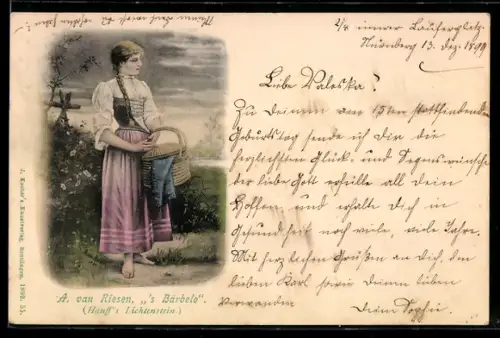 2/4 innere Laufergplatz.
Nürnberg 13. Dez. 1899
Liebe Valeska!
Zu Deinem am 15ten stattfindenden
Geburtstag sende ich Dir die
herzlichsten Glück- und Segenswünsche
der liebe Gott erfülle all Dein
Hoffen und erhalte Dich in
Gesundheit noch viele, viele Jahre.
Mit herzlichen Grüßen an Dich, den
lieben Karl sowie Deinen lieben
Verwandten
Deine Sophie.
A. van Riesen, „'s Bärbele“.
(Hauff's Lichtenstein.)
Kunstverlag, Reutlingen, 1899. 51.